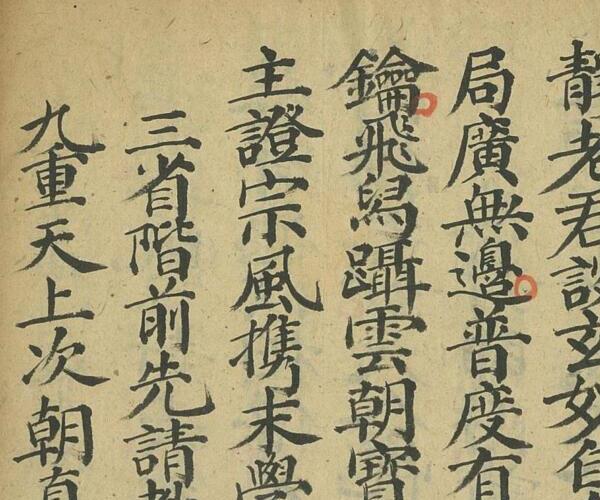 靜老君談玄妙
局廣無邊普度有
鑰飛舄躡雲朝寶
主證宗風携末學
三省階前先請
九重天上次朝真